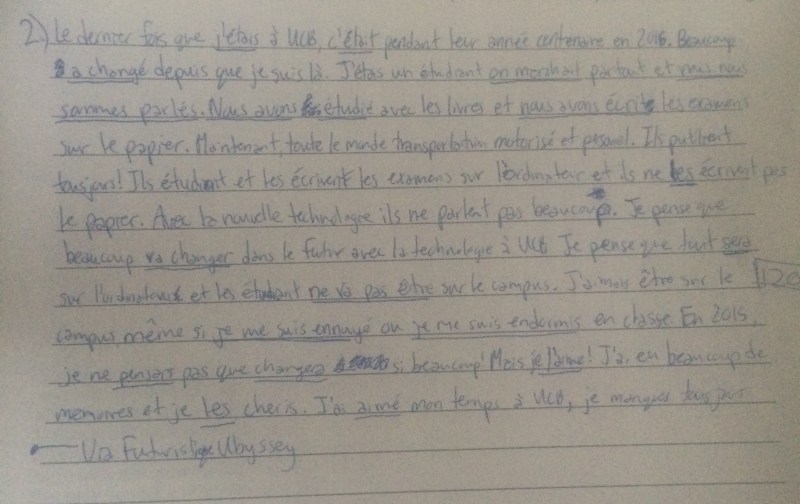 2.) Le dernier fois que j'étais à UCB, c'était pendant leur année centenaire en 2016. Beaucoup
a changé depuis que je suis là. J'étais un étudiant on marchait partout et nous nous
sommes parlés. Nous avons étudié avec les livres et nous avons écrit les examens
sur le papier. Maintenant, toute le monde transportation motorisé et personel. Ils
tousjours! Ils étudient et les écrivent les examens sur l'ordinateur et ils ne les écrivent pas
le papier. Avec la nouvelle technologie ils ne parlent pas beaucoup. Je pense que
beaucoup va changer dans le futur avec la technologie à UCB Je pense que tout sera
sur l'ordinateur et les étudiant ne va pas être sur le campus. J'aimais être sur le 120
campus même si je me suis ennuyé ou je me suis endormis en classe. En 2015,
je ne pensais pas que changera si beaucoup! Mais je l'aime! J'ai eu beaucoup de
memoires et je les cheris. J'ai aimé mon temps à UCB, je manques tousjours
— Via Futuristique Ubyssey